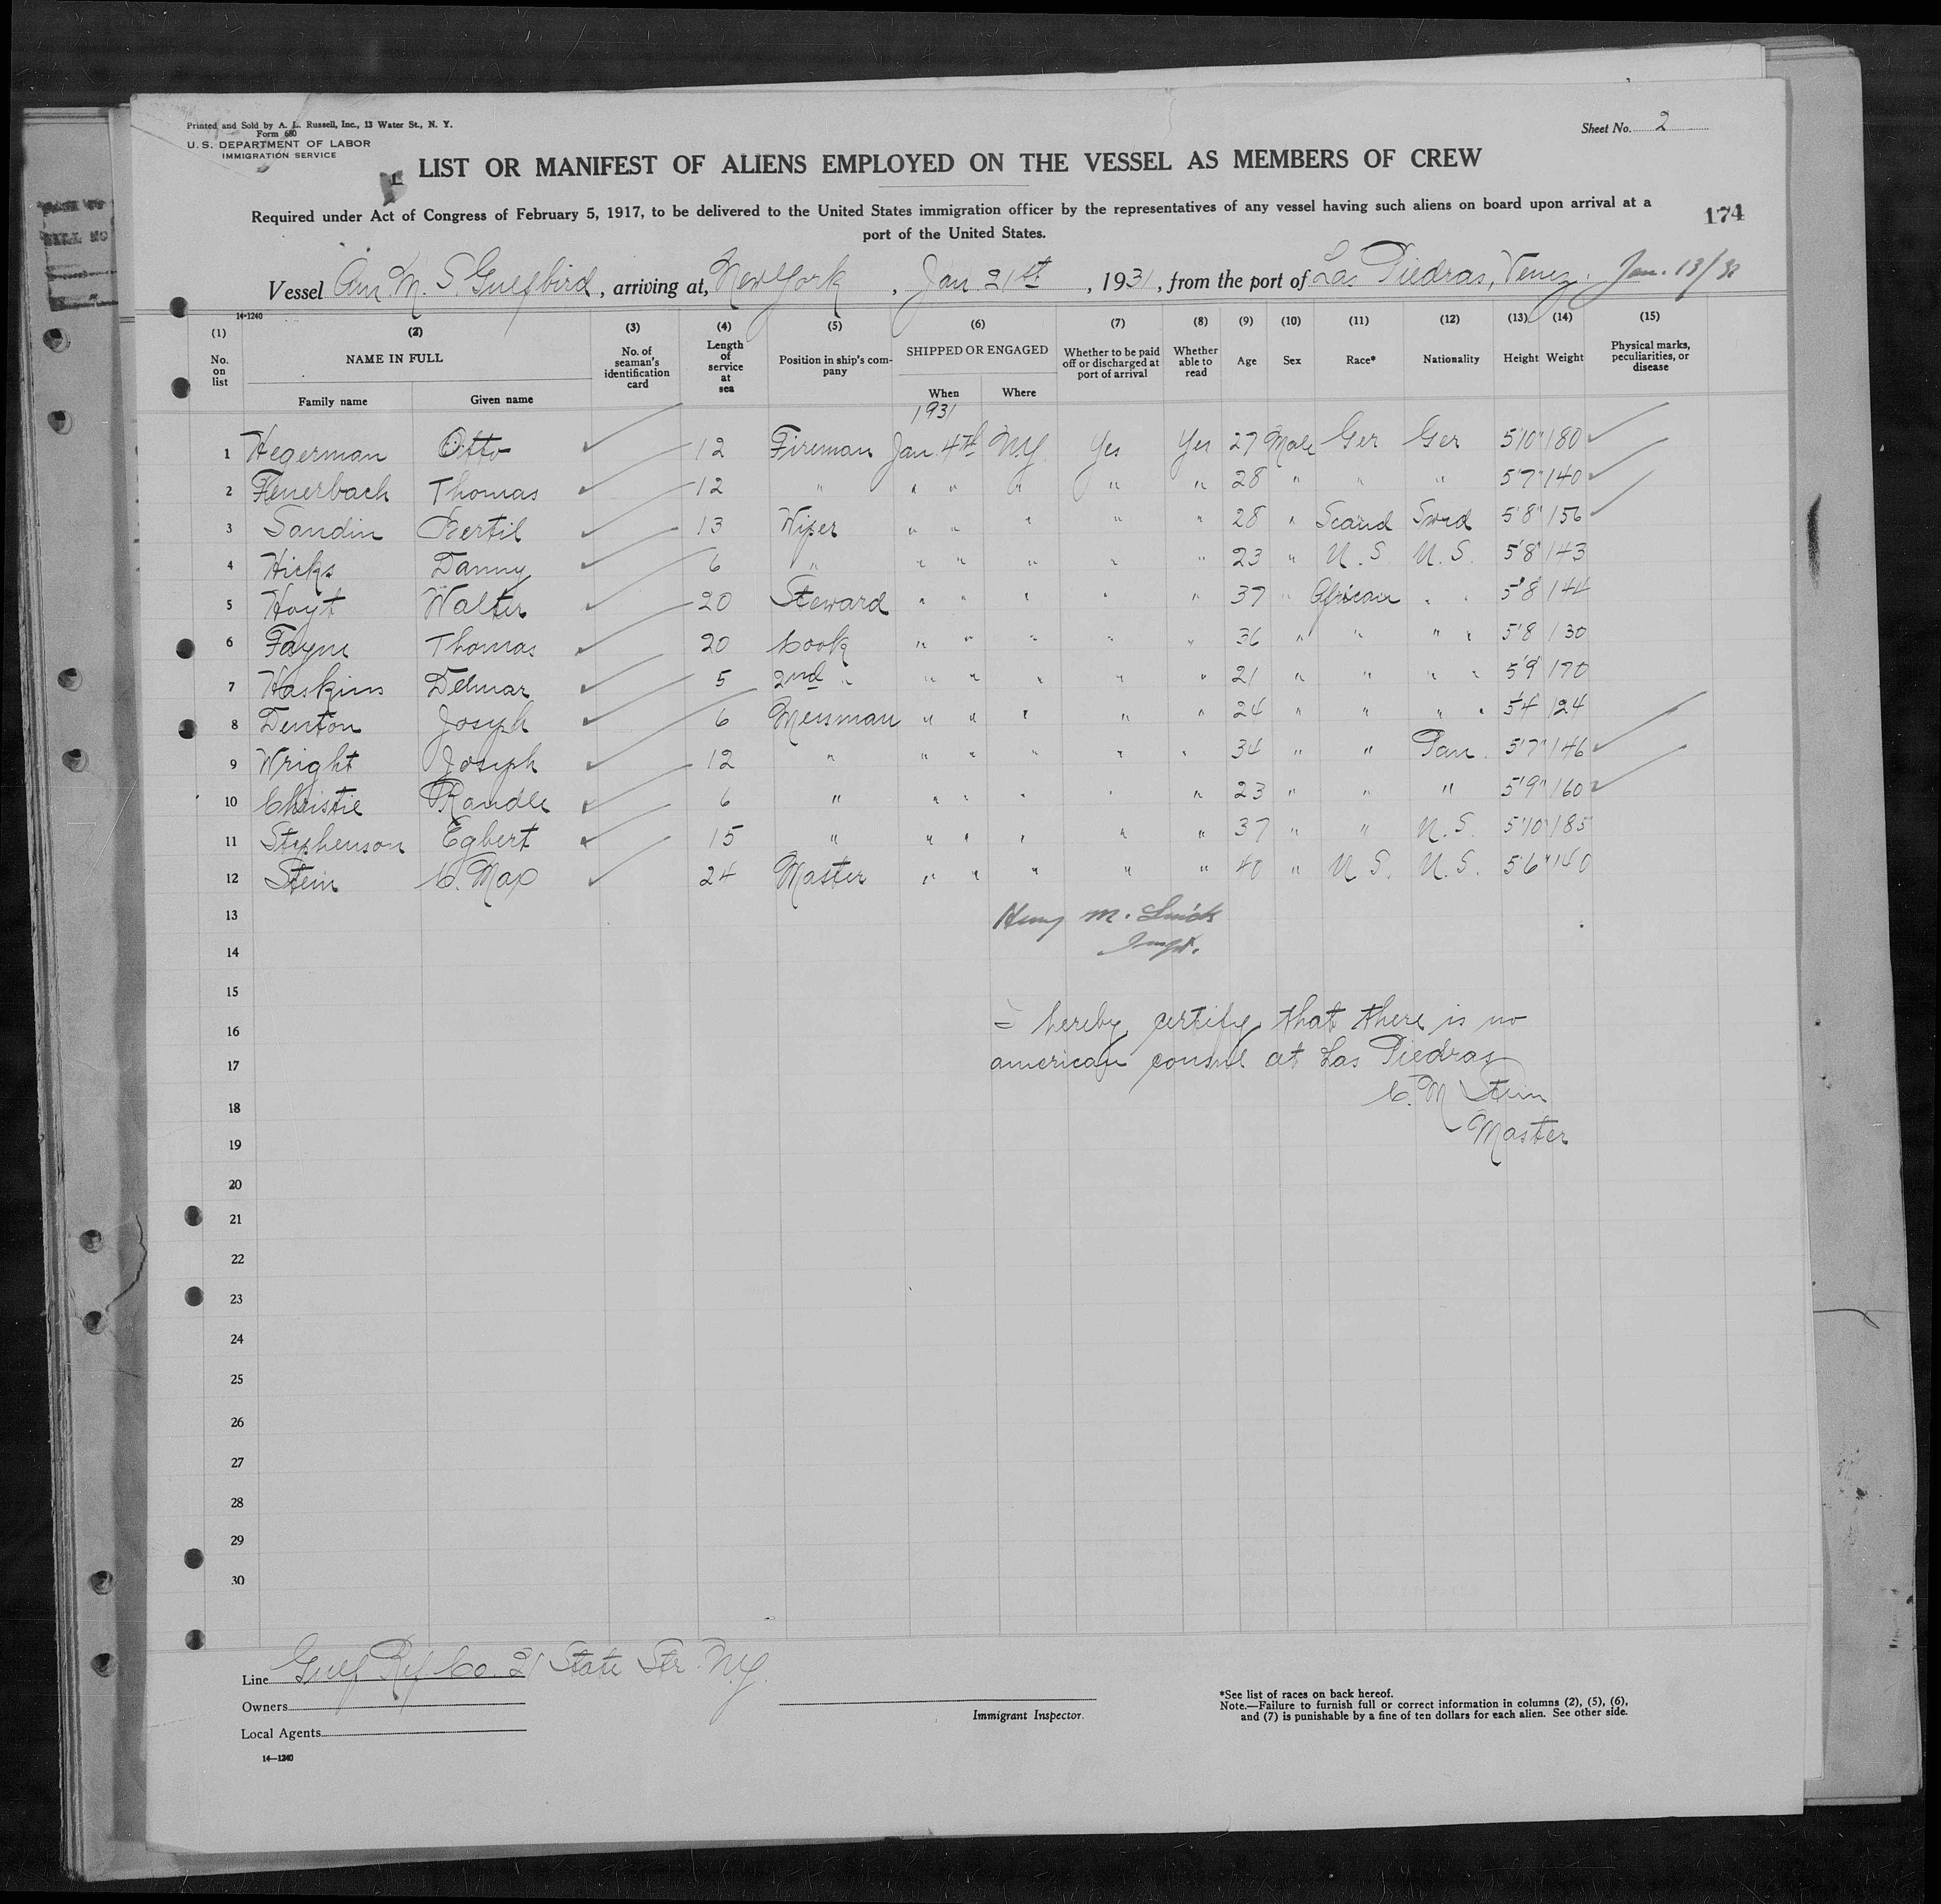 Printed and Sold by A. L. Russell, Inc., 13 Water St., N. Y.
Form 680
U. S. DEPARTMENT OF LABOR
IMMIGRATION SERVICE
Sheet No. 2
LIST OR MANIFEST OF ALIENS EMPLOYED ON THE VESSEL AS MEMBERS OF CREW
Required under Act of Congress of February 5, 1917, to be delivered to the United States immigration officer by the representatives of any vessel having such aliens on board upon arrival at a
port of the United States.
174
Vessel Am. M. S. Gulfbird, arriving at, New York, Jan 21st, 1931, from the port of Las Piedras, Venez. Jan. 13/31
14-1240
(1) (2) (3) (4) (5) (6) (7) (8) (9) (10) (11) (12) (13) (14) (15)
No. on list NAME IN FULL Family name Given name No. of seaman's identification card Length of service at sea Position in ship's company SHIPPED OR ENGAGED When Where Whether to be paid off or discharged at port of arrival Whether able to read Age Sex Race* Nationality Height Weight Physical marks, peculiarities, or disease
1931
1 Hegerman Otto 12 Fireman Jan 4th N.Y. Yes Yes 27 Male Ger Ger 5'10" 180
2 Feuerbach Thomas 12 " " " " " " 28 " " " 5'7" 140
3 Sandin Bertil 13 Wiper " " " " " 28 " Scand Swed 5'8" 156
4 Hicks Danny 6 " " " " " " 23 " U.S. U.S. 5'8" 143
5 Hoyt Walter 20 Steward " " " " " 37 " African " " 5'8 144
6 Fayne Thomas 20 Cook " " " " " 36 " " " " 5'8 130
7 Haskins Delmar 5 2nd " " " " " " 21 " " " " 5'9 170
8 Denton Joseph 6 Messman " " " " " 24 " " " " 5'4 124
9 Wright Joseph 12 " " " " " " 34 " " Pan. 5'7" 146
10 Christie Randle 6 " " " " " " 23 " " " 5'9" 160
11 Stephenson Egbert 15 " " " " " " 37 " " U.S. 5'10" 185
12 Stein C. Max 24 Master " " " " " 40 " U.S. U.S. 5'6" 140
13 Henry M.
14 Inspt.
15
16 I hereby certify that there is no
17 american consul at Las Piedras
18 C. M Stein
19 Master
20
21
22
23
24
25
26
27
28
29
30
Line Gulf Ref. Co. 21 State Str. N.y.
Owners
Local Agents
14—1240
Immigrant Inspector.
*See list of races on back hereof.
Note.—Failure to furnish full or correct information in columns (2), (5), (6),
and (7) is punishable by a fine of ten dollars for each alien. See other side.